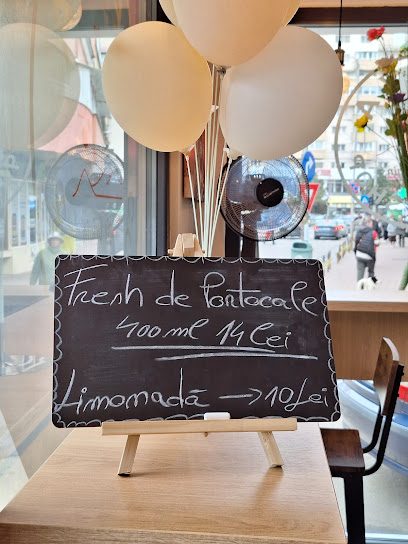 Fresh de Portocale
400 ml 14 Lei
Limonadă → 10 Lei